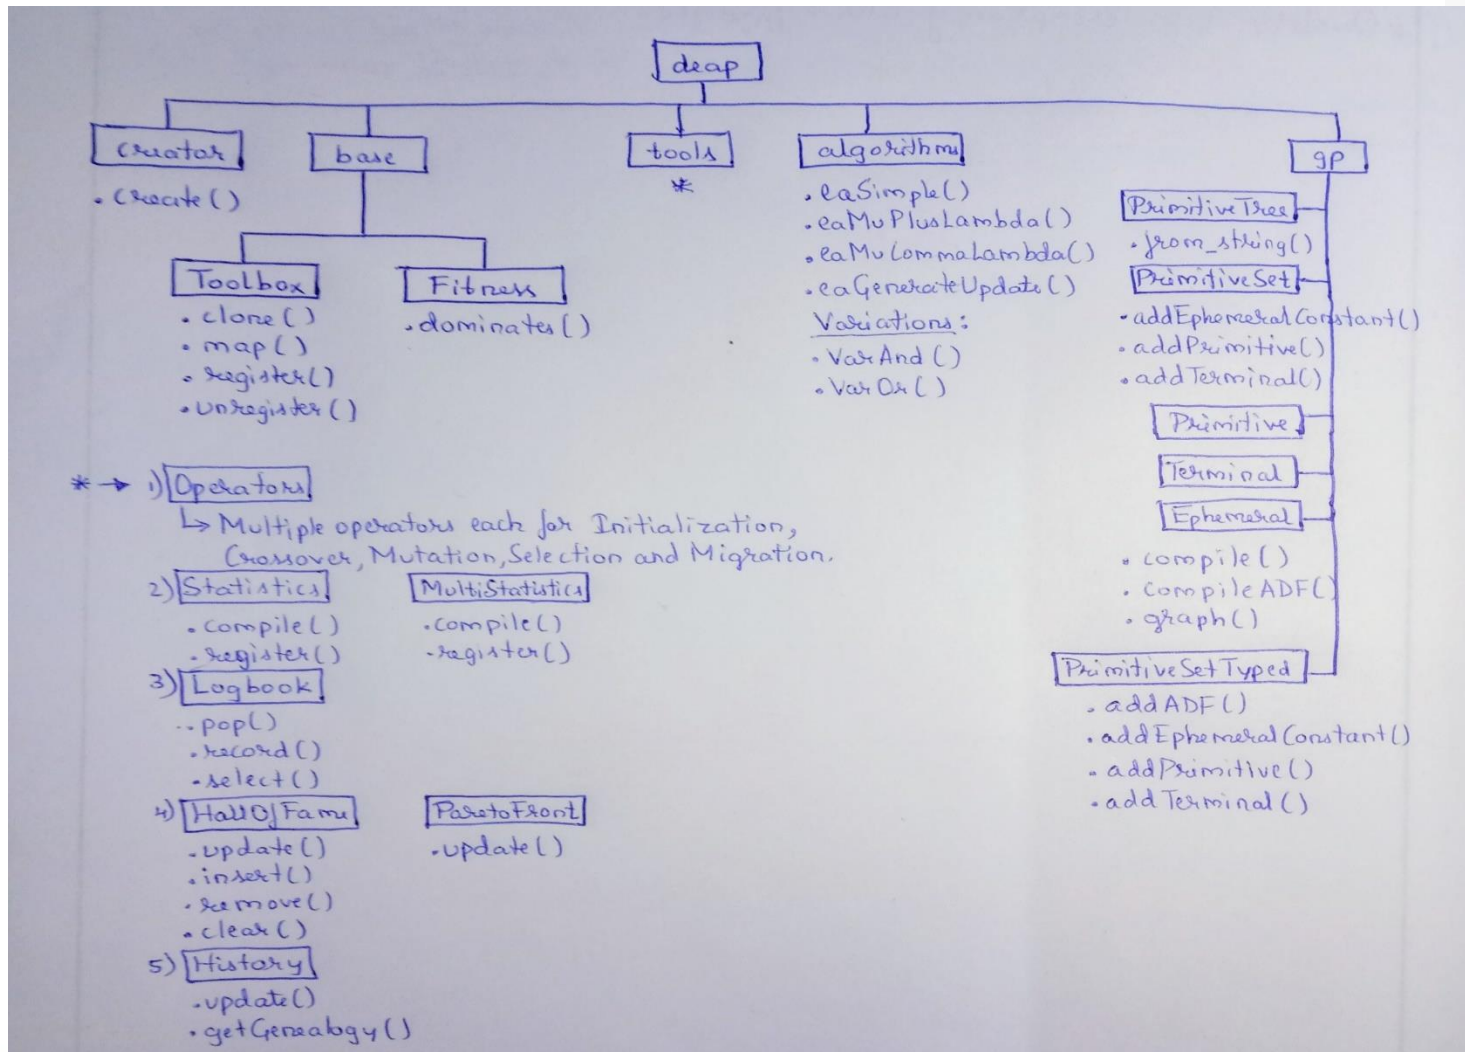 deap
creator
.create()
base
Toolbox
.clone()
.map()
.register()
.unregister()
Fitness
.dominates()
tools
*
algorithms
.eaSimple()
.eaMuPlusLambda()
.eaMuCommaLambda()
.eaGenerateUpdate()
Variations:
.VarAnd()
.VarOr()
gp
PrimitiveTree
.from_string()
PrimitiveSet
.addEphemeralConstant()
.addPrimitive()
.addTerminal()
Primitive
Terminal
Ephemeral
.compile()
.compileADF()
.graph()
PrimitiveSetTyped
.addADF()
.addEphemeralConstant()
.addPrimitive()
.addTerminal()
* → 1) Operators
↳ Multiple operators each for Initialization,
Crossover, Mutation, Selection and Migration.
2) Statistics
.compile()
.register()
MultiStatistics
.compile()
.register()
3) Logbook
.pop()
.record()
.select()
4) HallOfFame
.update()
.insert()
.remove()
.clear()
ParetoFront
.update()
5) History
.update()
.getGenealogy()